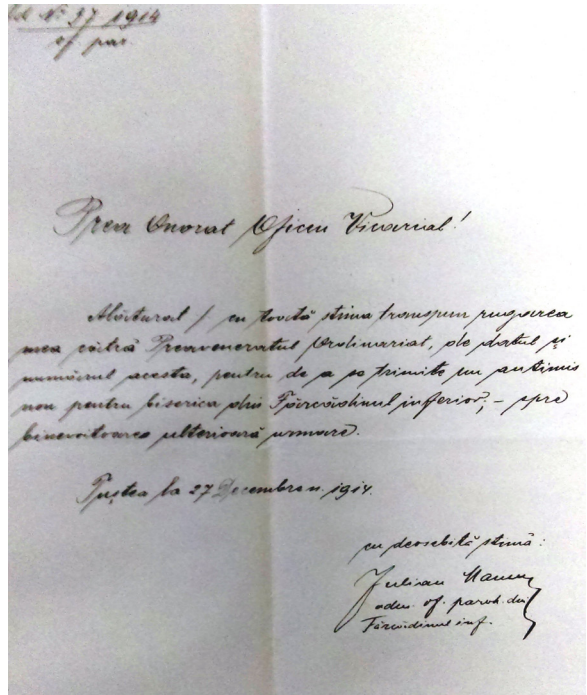 Nr. 27 1914
of. par.
Prea Onorat Oficiu Vicarial!
Alăturat / cu toată stima transpun rugarea
mea cătră Preaveneratul Ordinariat, de datul și
numărul acesta, pentru de a se trimite un antimis
nou pentru biserica din Fărcădinul inferior, – spre
binevoitoarea ulterioară urmare.
la 27 Decembren 1914.
cu deosebită stimă:
Iulian
adm. of. paroh. din
Fărcădinul inf.